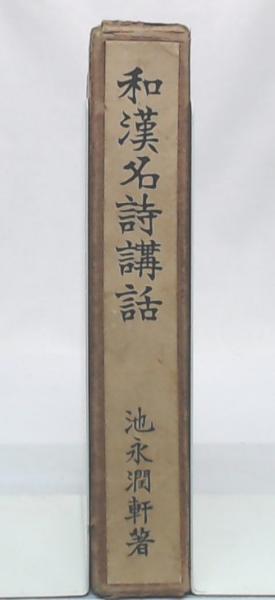 和漢名詩講話
池永潤軒著